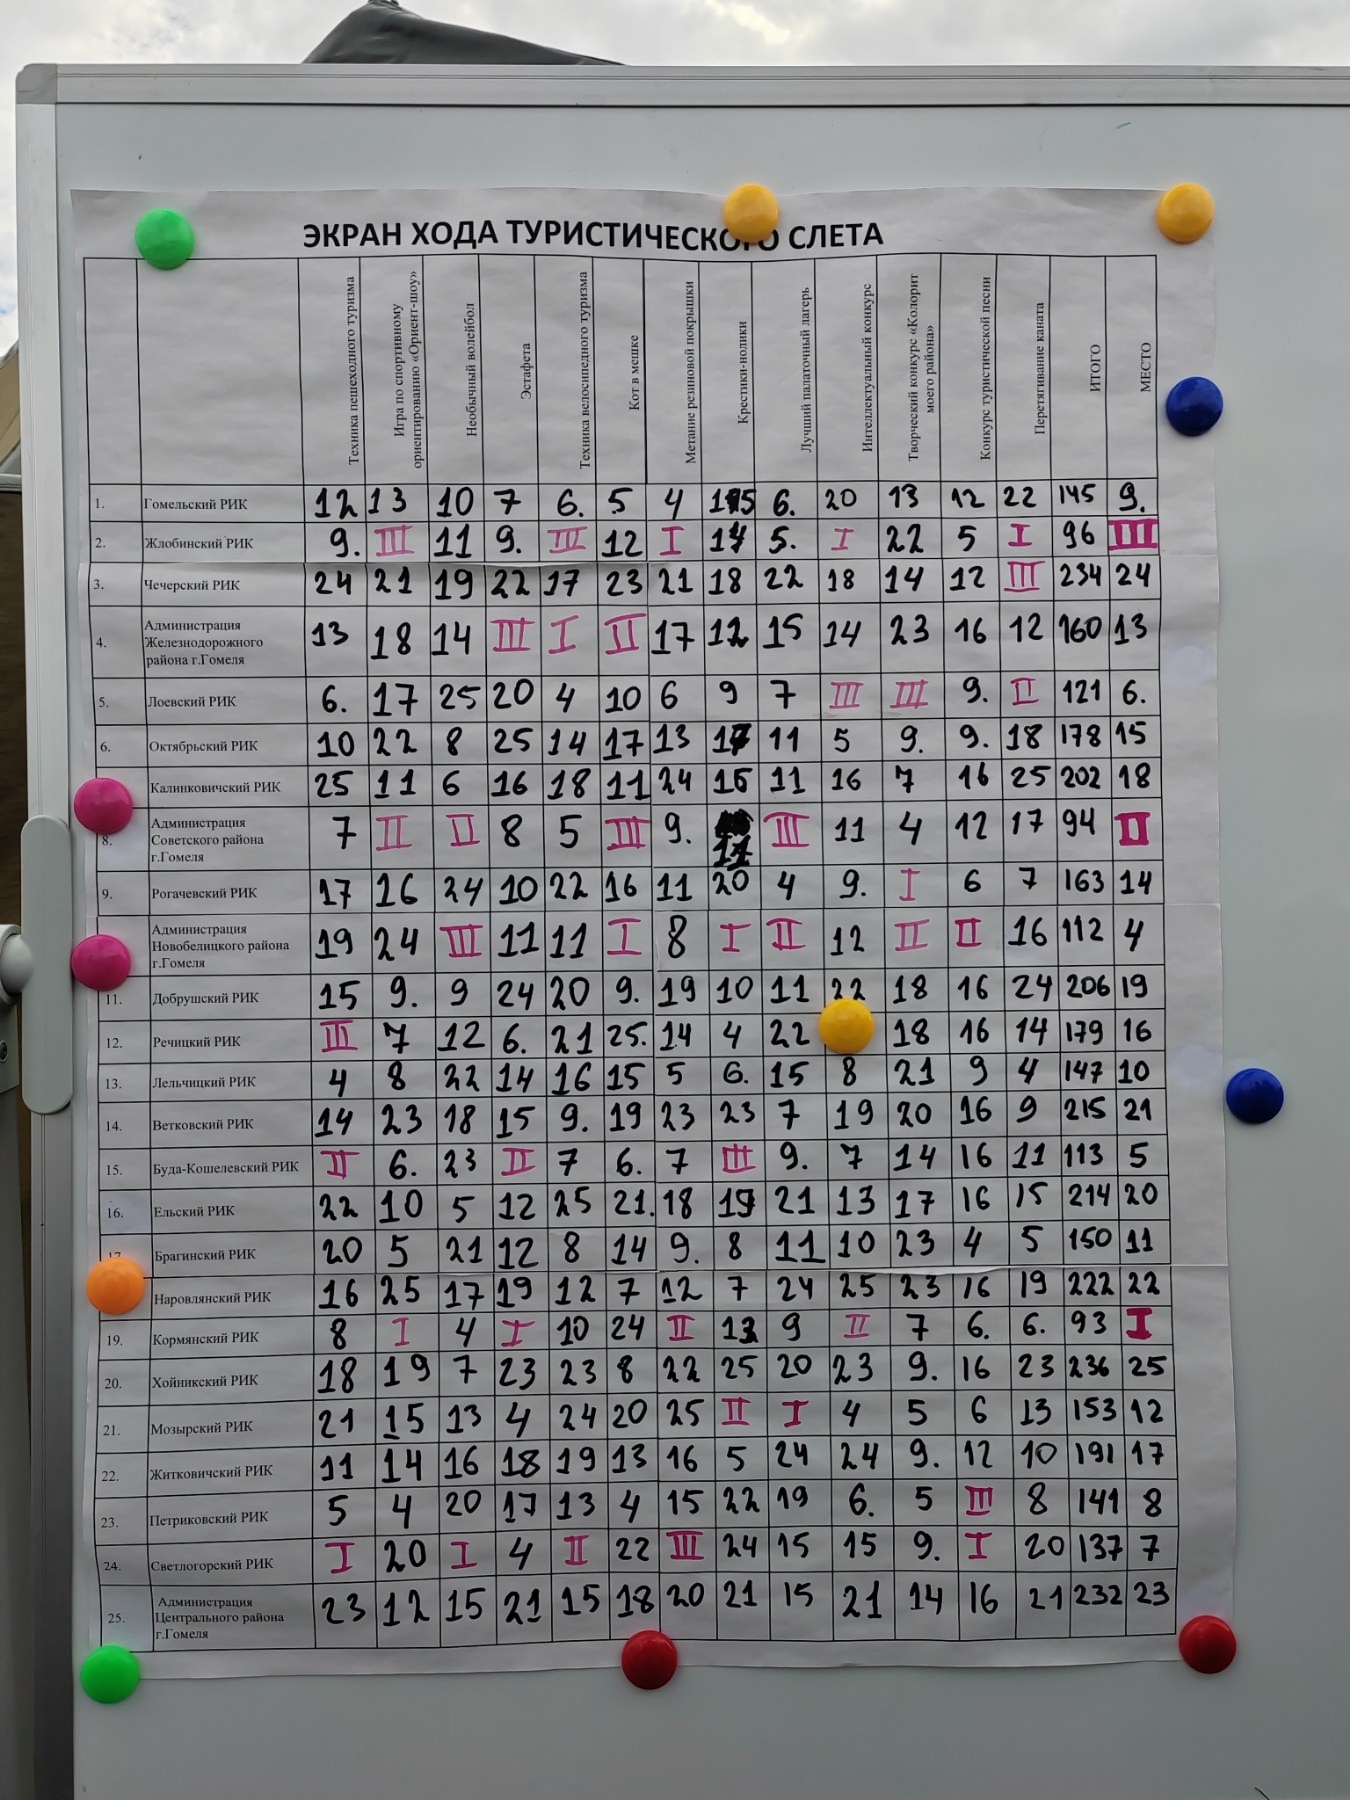 ЭКРАН ХОДА ТУРИСТИЧЕСКОГО СЛЕТА
Техника пешеходного туризма
Игра по спортивному ориентированию «Ориент-шоу»
Необычный волейбол
Эстафета
Техника велосипедного туризма
Кот в мешке
Метание резиновой покрышки
Крестики-нолики
Лучший палаточный лагерь
Интеллектуальный конкурс
Творческий конкурс «Колорит моего района»
Конкурс туристической песни
Перетягивание каната
ИТОГО
МЕСТО
1. Гомельский РИК 12 13 10 7 6. 5 4 15 6. 20 13 12 22 145 9.
2. Жлобинский РИК 9. III 11 9. III 12 I 14 5. I 22 5 I 96 III
3. Чечерский РИК 24 21 19 22 17 23 21 18 22 18 14 12 III 234 24
4. Администрация Железнодорожного района г.Гомеля 13 18 14 III I II 17 12 15 14 23 16 12 160 13
5. Лоевский РИК 6. 17 25 20 4 10 6 9 7 III III 9. II 121 6.
6. Октябрьский РИК 10 22 8 25 14 17 13 17 11 5 9. 9. 18 178 15
Калинковичский РИК 25 11 6 16 18 11 24 16 11 16 7 16 25 202 18
8. Администрация Советского района г.Гомеля 7 II II 8 5 III 9. 11 III 11 4 12 17 94 II
9. Рогачевский РИК 17 16 24 10 22 16 11 20 4 9. I 6 7 163 14
Администрация Новобелицкого района г.Гомеля 19 24 III 11 11 I 8 I II 12 II II 16 112 4
11. Добрушский РИК 15 9. 9 24 20 9. 19 10 11 22 18 16 24 206 19
12. Речицкий РИК III 7 12 6. 21 25. 14 4 22 18 16 14 179 16
13. Лельчицкий РИК 4 8 22 14 16 15 5 6. 15 8 21 9 4 147 10
14. Ветковский РИК 14 23 18 15 9. 19 23 23 7 19 20 16 9 215 21
15. Буда-Кошелевский РИК II 6. 23 II 7 6. 7 III 9. 7 14 16 11 113 5
16. Ельский РИК 22 10 5 12 25 21. 18 19 21 13 17 16 15 214 20
17. Брагинский РИК 20 5 21 12 8 14 9. 8 11 10 23 4 5 150 11
Наровлянский РИК 16 25 17 19 12 7 12 7 24 25 23 16 19 222 22
19. Кормянский РИК 8 I 4 I 10 24 II 13 9 II 7 6. 6. 93 I
20. Хойникский РИК 18 19 7 23 23 8 22 25 20 23 9. 16 23 236 25
21. Мозырский РИК 21 15 13 4 24 20 25 II I 4 5 6 13 153 12
22. Житковичский РИК 11 14 16 18 19 13 16 5 24 24 9. 12 10 191 17
23. Петриковский РИК 5 4 20 17 13 4 15 22 19 6. 5 III 8 141 8
24. Светлогорский РИК I 20 I 4 II 22 III 24 15 15 9. I 20 137 7
25. Администрация Центрального района г.Гомеля 23 12 15 21 15 18 20 21 15 21 14 16 21 232 23